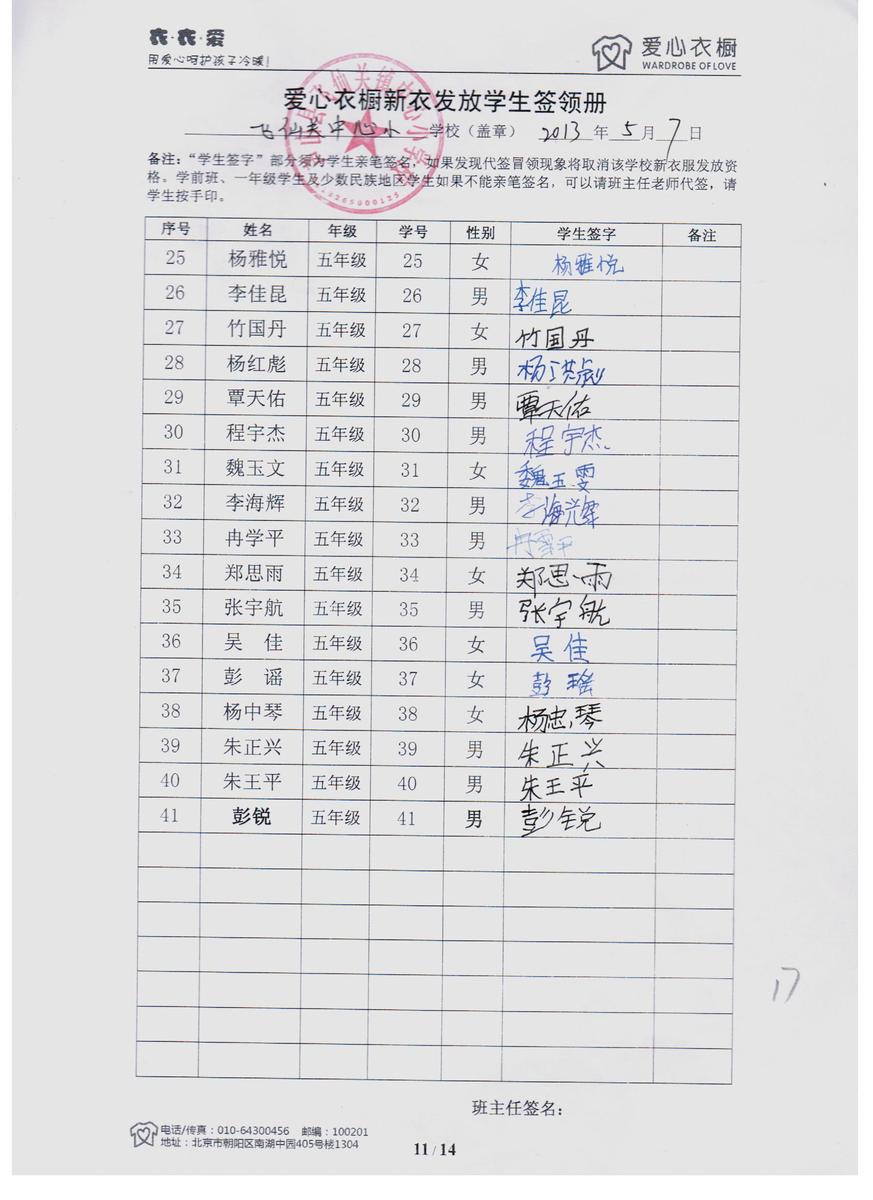 衣·衣·爱
用爱心呵护孩子冷暖!
爱心衣橱
WARDROBE OF LOVE
爱心衣橱新衣发放学生签领册
飞仙关中心小 学校（盖章） 2013 年 5 月 7 日
备注：“学生签字”部分须为学生亲笔签名，如果发现代签冒领现象将取消该学校新衣服发放资
格。学前班、一年级学生及少数民族地区学生如果不能亲笔签名，可以请班主任老师代签，请
学生按手印。
序号 姓名 年级 学号 性别 学生签字 备注
25 杨雅悦 五年级 25 女 杨雅悦
26 李佳昆 五年级 26 男 李佳昆
27 竹国丹 五年级 27 女 竹国丹
28 杨红彪 五年级 28 男 杨洪彪
29 覃天佑 五年级 29 男 覃天佑
30 程宇杰 五年级 30 男 程宇杰
31 魏玉文 五年级 31 女 魏玉雯
32 李海辉 五年级 32 男 李海辉
33 冉学平 五年级 33 男 冉雪平
34 郑思雨 五年级 34 女 郑思雨
35 张宇航 五年级 35 男 张宇航
36 吴 佳 五年级 36 女 吴佳
37 彭 谣 五年级 37 女 彭瑶
38 杨中琴 五年级 38 女 杨忠琴
39 朱正兴 五年级 39 男 朱正兴
40 朱王平 五年级 40 男 朱王平
41 彭锐 五年级 41 男 彭锐
17
班主任签名：
电话/传真：010-64300456 邮编：100201
地址：北京市朝阳区南湖中园405号楼1304
11 / 14